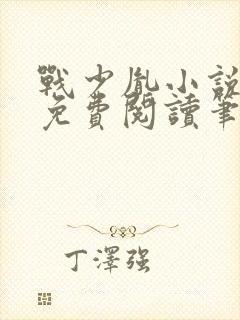 戰少胤小說
免費閱讀筆
丁澤強